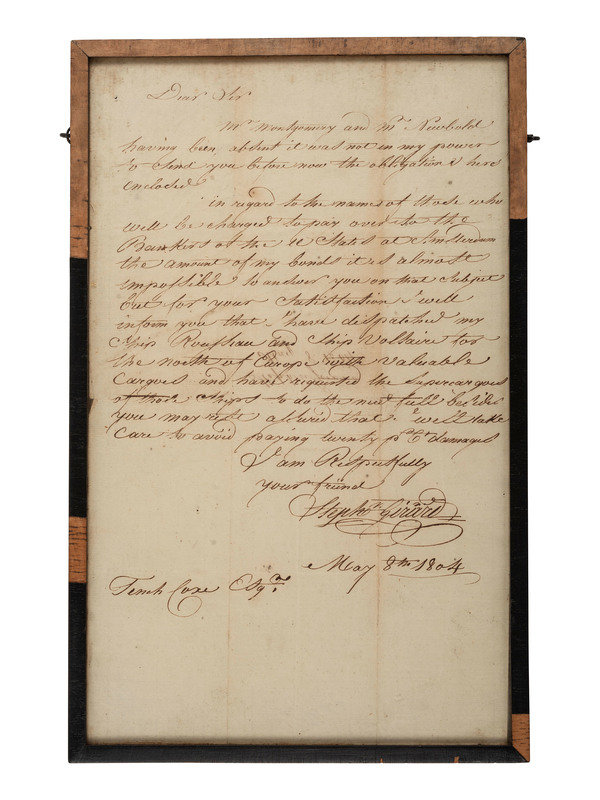 Dear Sir
Mr Montgomery and Mr Newbold
having been absent it was not in my power
to Send you before now the obligation is here
enclosed
in regard to the names of those who
will be charged to pay over to the
Bankers of the U States at Amsterdam
the amount of my bonds it is almost
impossible to answer you on that Subject
but for your Satisfaction I will
inform you that I have dispatched my
Ship Rousseau and Ship Voltaire too
the north of Europe with valuable
Cargoes and have requested the Supercargoes
of those Ships to do the
you may rest assured that I will take
Care to avoid paying twenty pr Ct damages
I am Respectfully
your friend
Stephn Girard
May 8th 1804
Tench Coxe Esqre